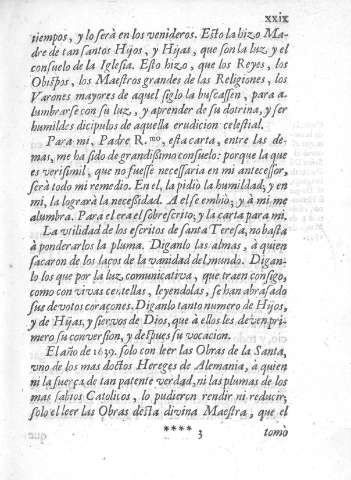 xxix
tiempos, y lo serà en los venideros. Esto la hizo Ma-
dre de tan santos Hijos, y Hijas, que son la luz y el
consuelo de la Iglesia. Esto hizo, que los Reyes, los
Obispos, los Maestros grandes de las Religiones, los
Varones mayores de aquel siglo la buscassen, para a-
lumbrarse con su luz, y aprender de su dotrina, y ser
humildes dicipulos de aquella erudicion celestial.
Para mi, Padre R.mo, esta carta, entre las de-
mas, me ha sido de grandissimo consuelo: porque la que
es verisimil, que no fuesse necessaria en mi antecessor,
serà todo mi remedio. En el, la pidio la humildad, y en
mi, la lograrà la necessidad. A el se embio; y à mi me
alumbra. Para el era el sobrescrito; y la carta para mi.
La utilidad de los escritos de santa Teresa, no basta
à ponderarlos la pluma. Diganlo las almas, à quien
sacaron de los laços de la vanidad del mundo. Digan-
lo los que por la luz comunicativa, que traen consigo,
como con vivas centellas, leyendolas, se han abrasado
sus devotos coraçones. Diganlo tanto numero de Hijos,
y de Hijas, y siervos de Dios, que à ellos les deven pri-
mero su conversion, y despues su vocacion.
El año de 1639. solo con leer las Obras de la Santa,
uno de los mas doctos Hereges de Alemania, a quien
ni la fuerça de tan patente verdad, ni las plumas de los
mas sabios Catolicos, lo pudieron rendir ni reducir;
solo el leer las Obras desta divina Maestra, que el
**** 3 tomò